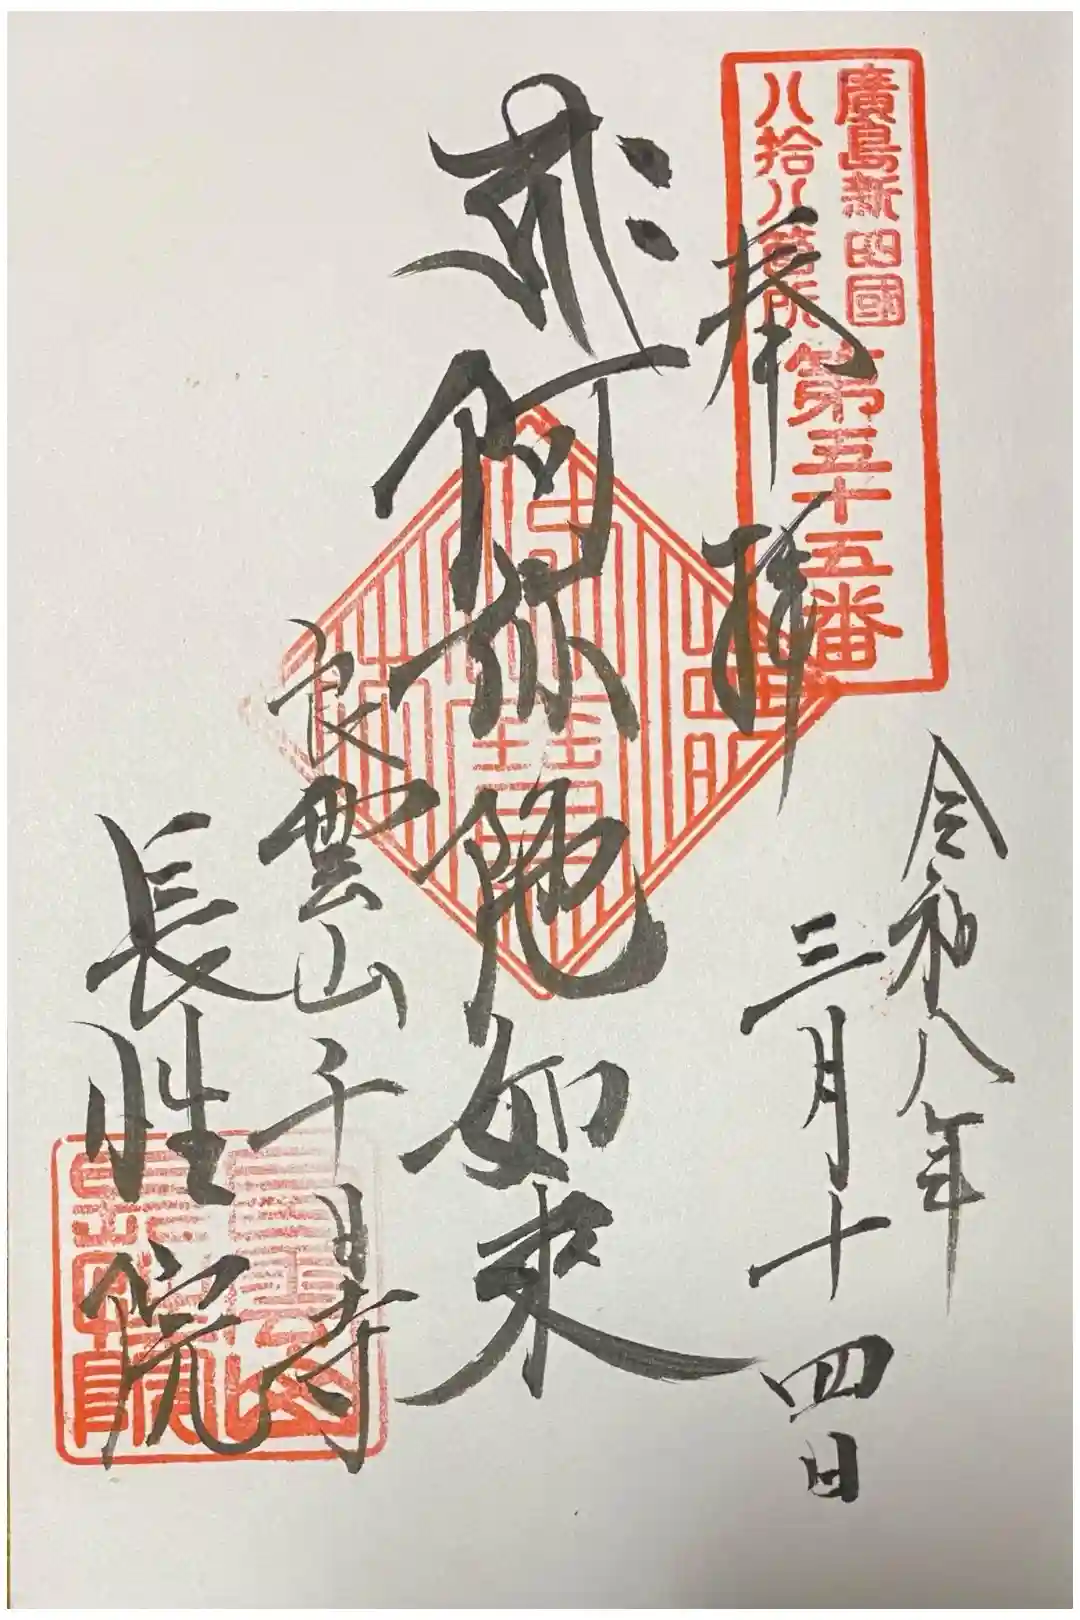 廣島新四國
八拾八箇所
第五十五番
奉拝
令和八年
三月十四日
阿弥陀如来
良雲山千日寺
長性院